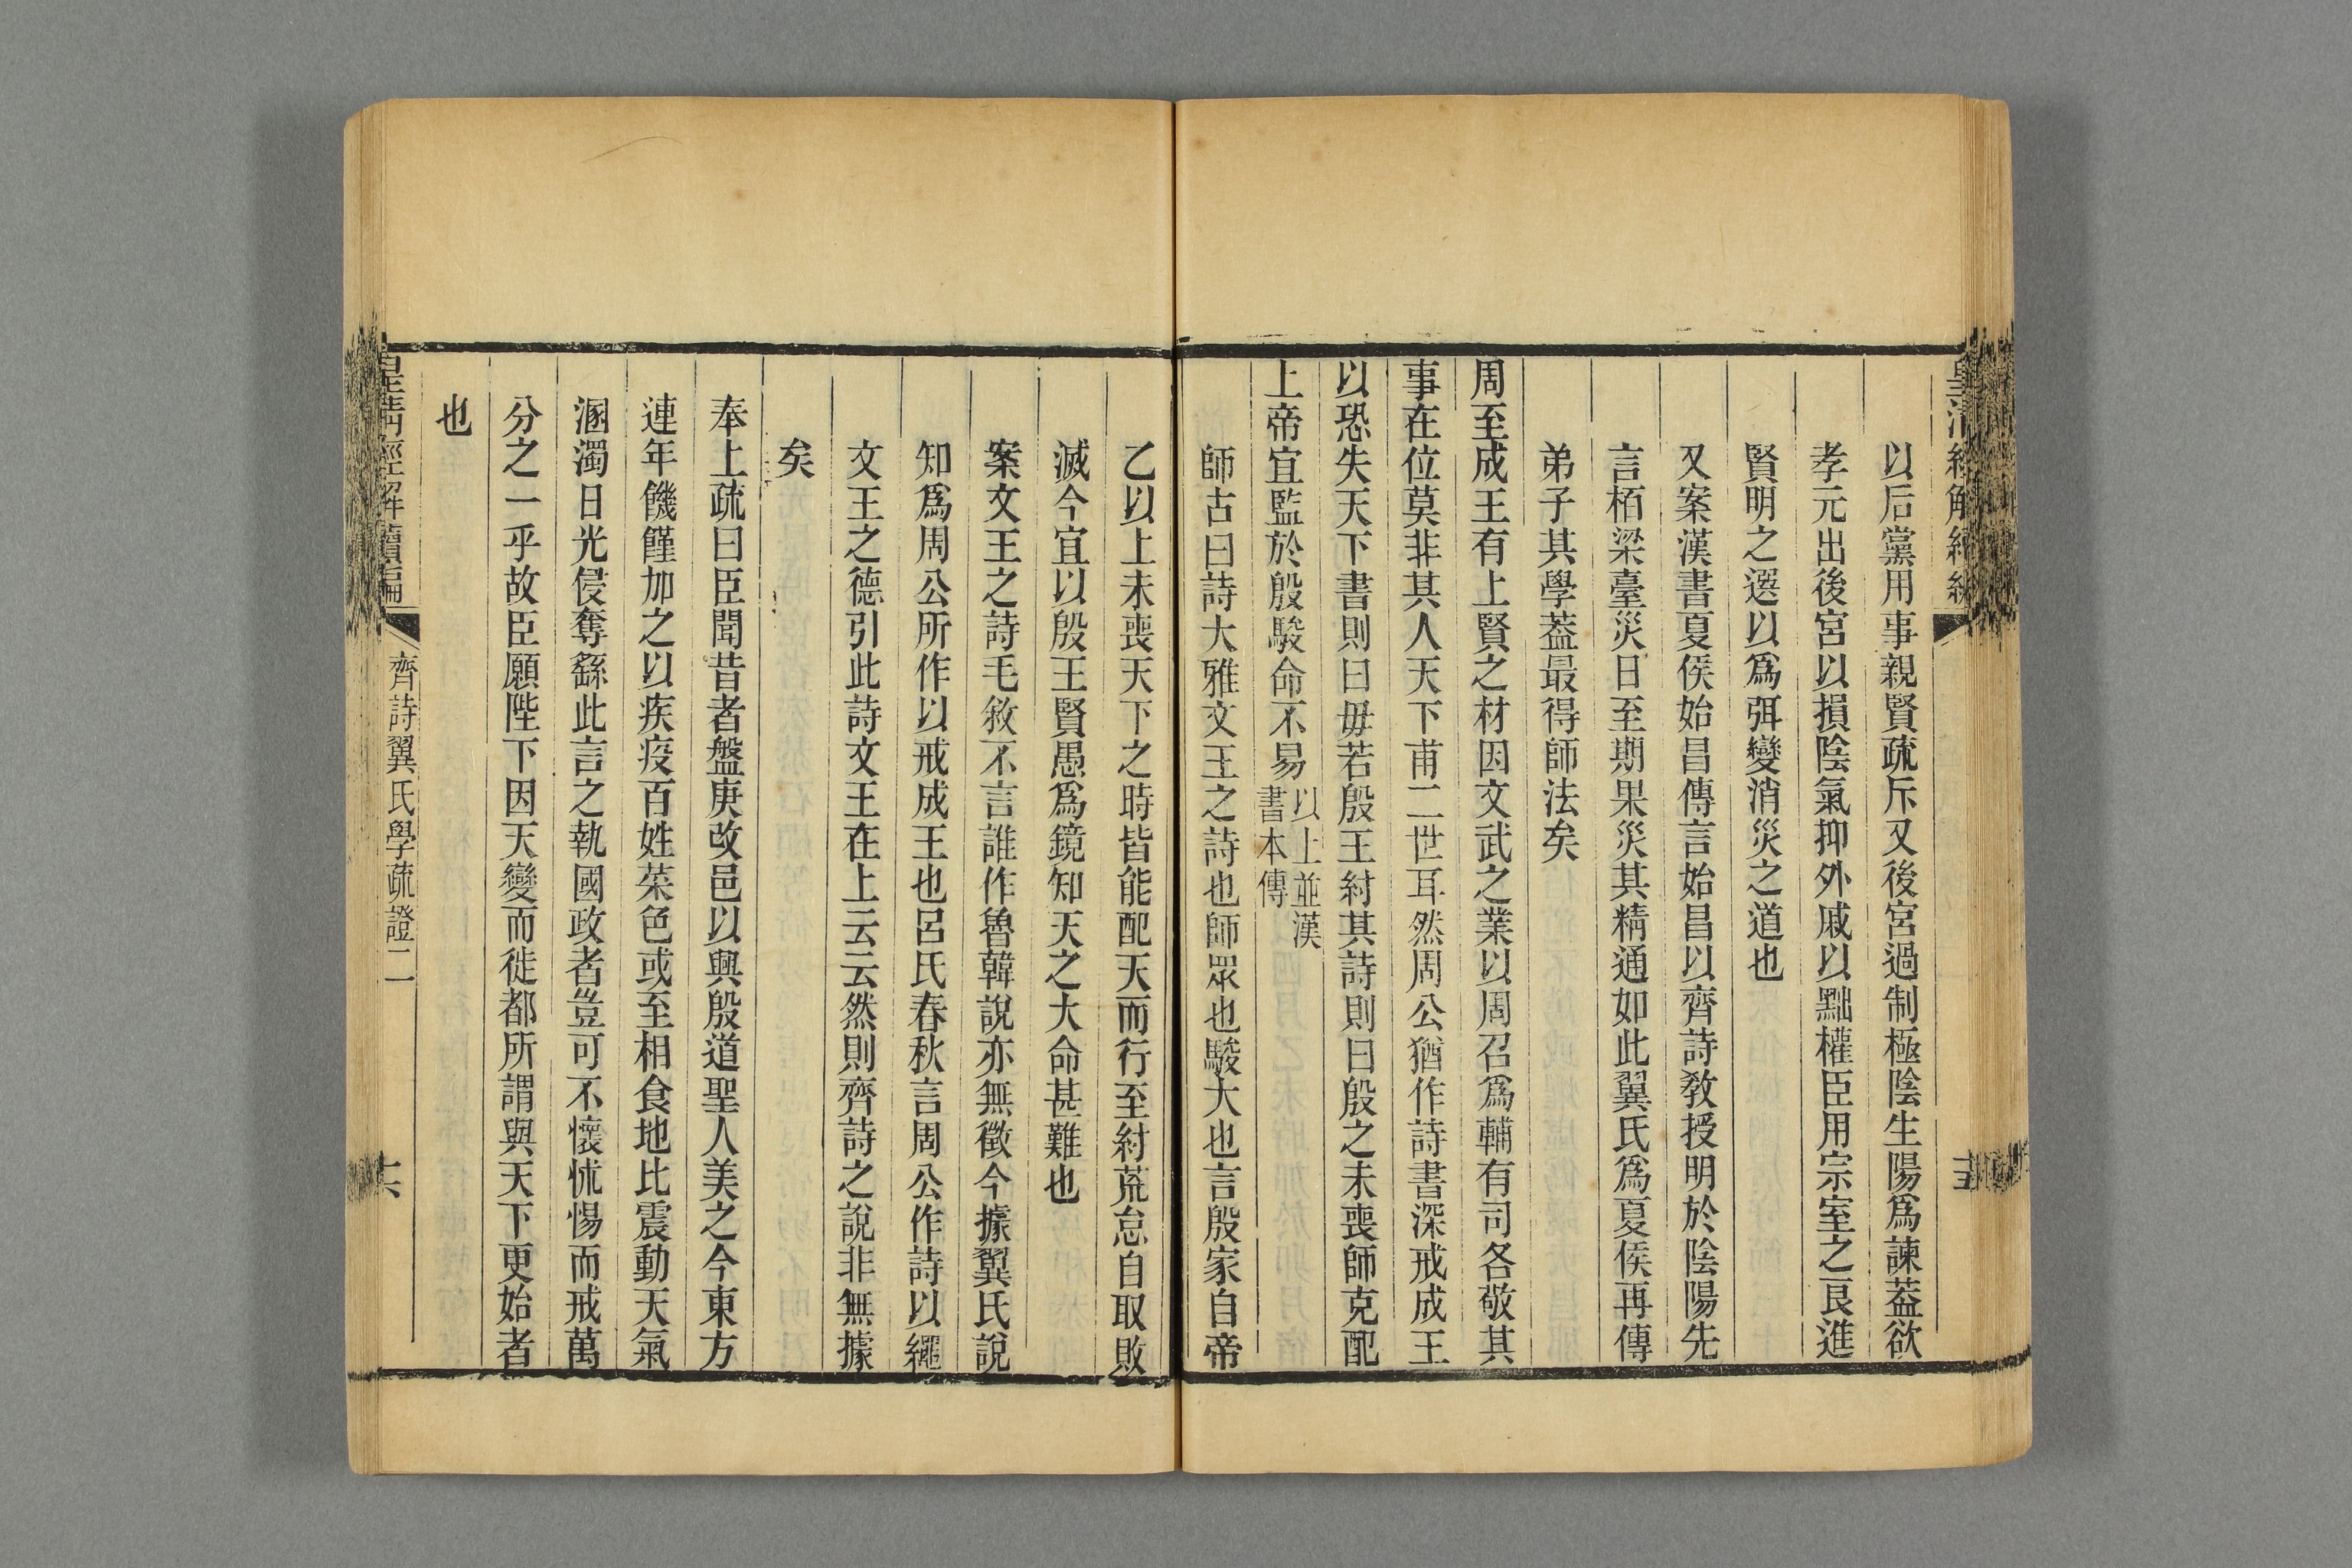 以后黨用事親賢疏斥又後宮過制極陰生陽爲諫葢欲
孝元出後宮以損陰氣抑外戚以黜權臣用宗室之良進
賢明之選以爲弭變消災之道也
又案漢書夏侯始昌傳言始昌以齊詩敎授明於陰陽先
言栢梁臺災日至期果災其精通如此翼氏爲夏侯再傳
弟子其學葢最得師法矣
周至成王有上賢之材因文武之業以周召爲輔有司各敬其
事在位莫非其人天下甫二世耳然周公猶作詩書深戒成王
以恐失天下書則曰毋若殷王紂其詩則曰殷之未喪師克配
上帝宜監於殷駿命不易以上並漢
書本傳
師古曰詩大雅文王之詩也師眾也駿大也言殷家自帝
乙以上未喪天下之時皆能配天而行至紂荒怠自取敗
滅今宜以殷王賢愚爲鏡知天之大命甚難也
案文王之詩毛敘不言誰作魯韓說亦無徵今據翼氏說
知爲周公所作以戒成王也呂氏春秋言周公作詩以繩
文王之德引此詩文王在上云云然則齊詩之說非無據
矣
奉上疏曰臣聞昔者盤庚改邑以興殷道聖人美之今東方
連年饑饉加之以疾疫百姓菜色或至相食地比震動天氣
溷濁日光侵奪繇此言之執國政者豈可不懷怵惕而戒萬
分之一乎故臣願陛下因天變而徙都所謂與天下更始者
也
皇清經解續編
齊詩翼氏學疏證二